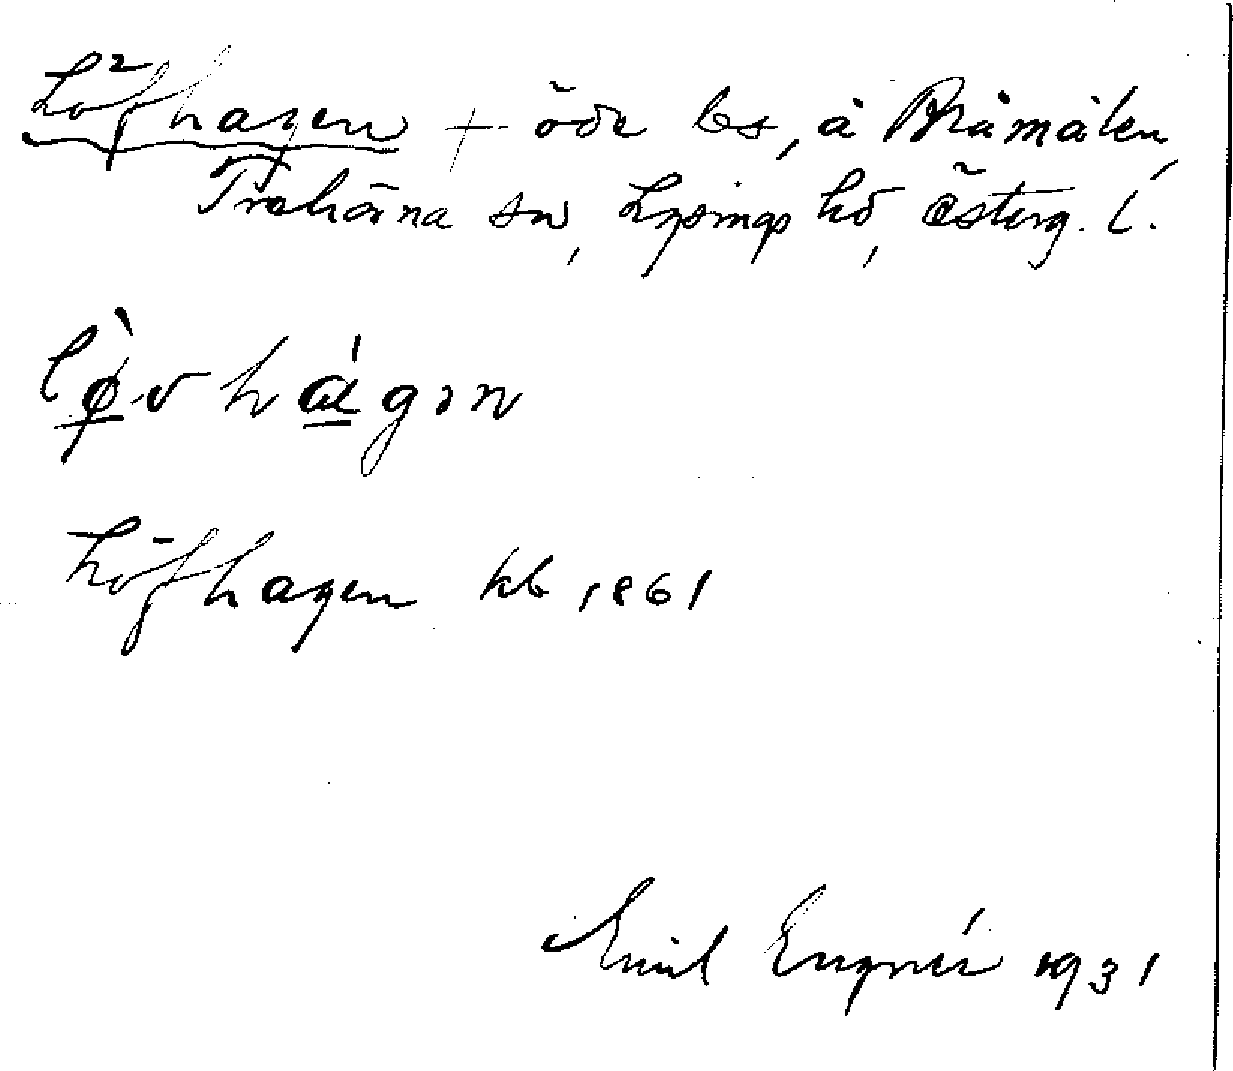 Löfhagen + öde bs, å Bråmålen,
Trehörna sn, Lysings hd, Österg. l.
lø̀vhágən
Löfhagen kb 1861
Emil Engnér 1931